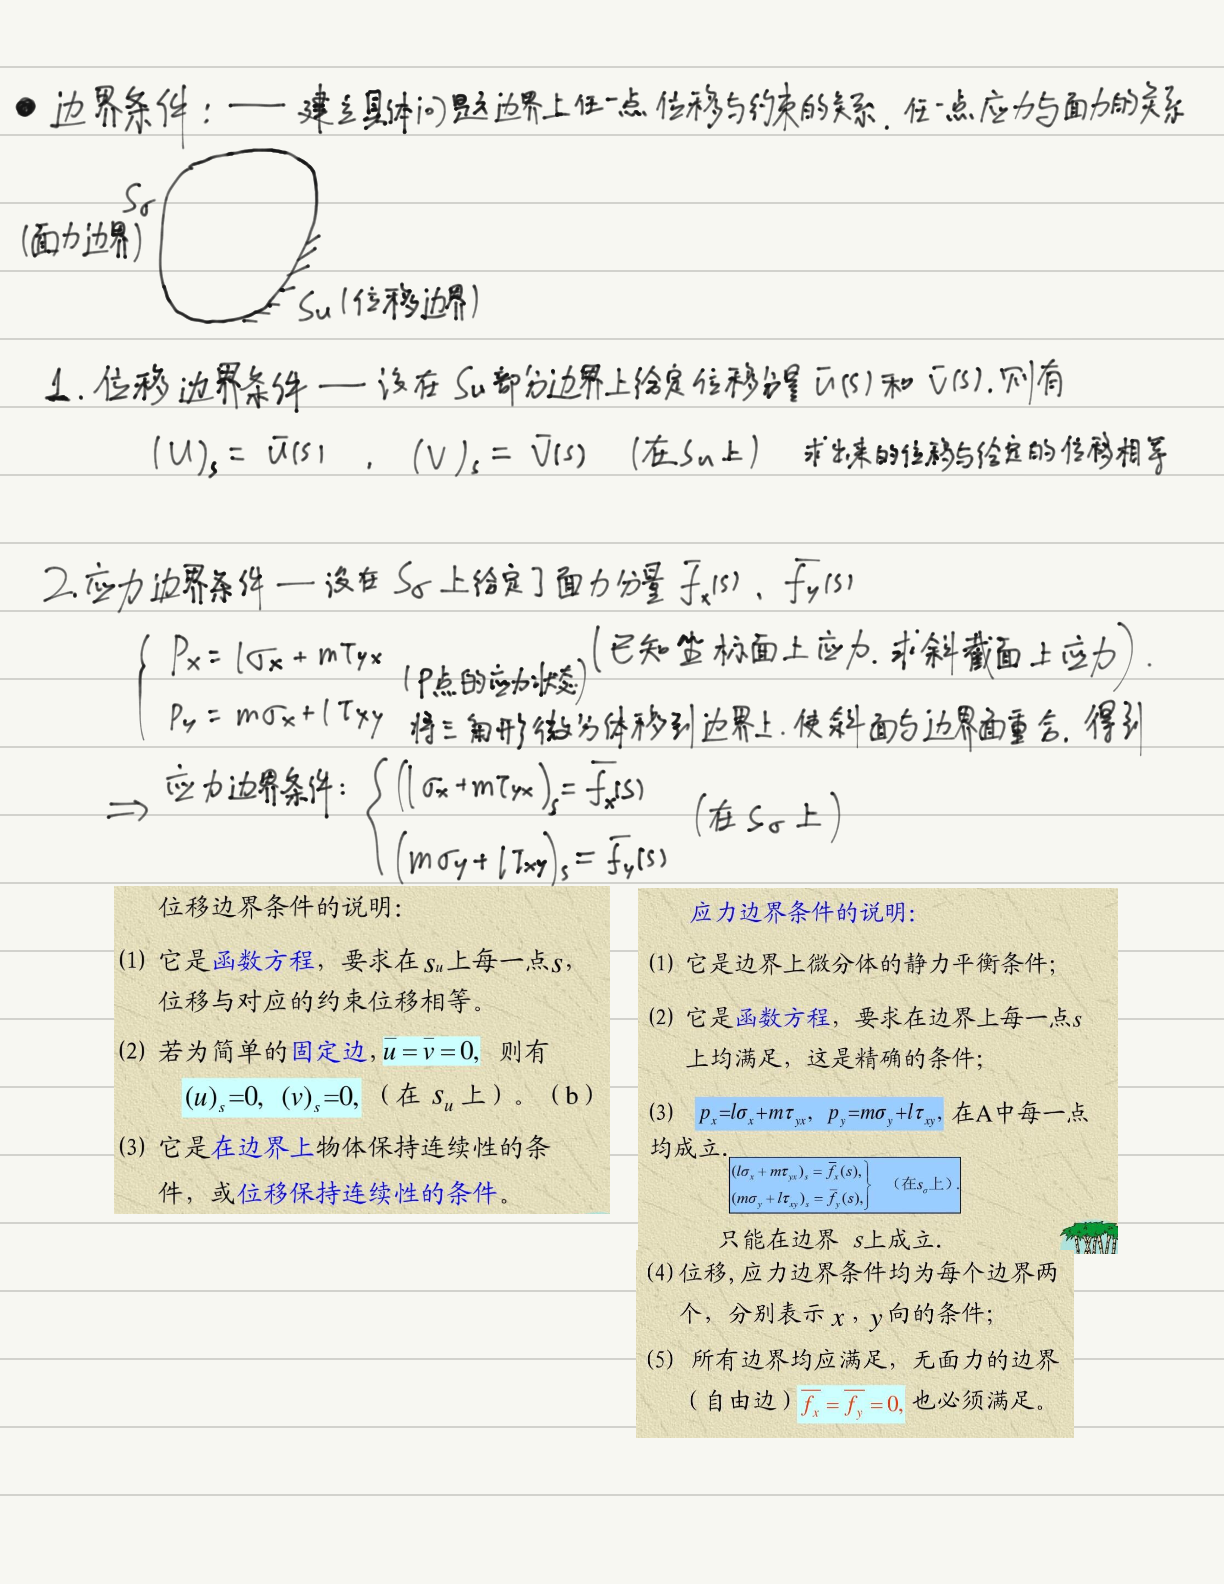 ● 边界条件：—— 建立具体问题边界上任一点位移与约束的关系. 任一点应力与面力的关系
Sσ
(面力边界)
Su (位移边界)
1. 位移边界条件 —— 设在 Su 部分边界上给定位移分量 ū(s) 和 v̄(s). 则有
(U)s = ū(s) , (V)s = v̄(s) (在Su上) 求出来的位移与给定的位移相等
2. 应力边界条件 — 设在 Sσ 上给定了面力分量 f̄x(s)、f̄y(s)
{ Px = lσx + mτyx (已知坐标面上应力. 求斜截面上应力).
(P点的应力状态)
Py = mσx + lτxy 将三角形微分体移到边界上. 使斜面与边界面重合. 得到
⇒ 应力边界条件: { (lσx + mτyx)s = f̄x(s)
(在 Sσ 上)
(mσy + lτxy)s = f̄y(s)
位移边界条件的说明:
(1) 它是函数方程，要求在su上每一点s，
位移与对应的约束位移相等。
(2) 若为简单的固定边, ū = v̄ = 0, 则有
(u)s=0, (v)s=0, （在 su 上）。（b）
(3) 它是在边界上物体保持连续性的条
件，或位移保持连续性的条件。
应力边界条件的说明:
(1) 它是边界上微分体的静力平衡条件;
(2) 它是函数方程，要求在边界上每一点s
上均满足，这是精确的条件;
(3) px=lσx+mτyx, py=mσy+lτxy, 在A中每一点
均成立.
(lσx + mτyx)s = f̄x(s),
(mσy + lτxy)s = f̄y(s), } （在sσ上）.
只能在边界 s上成立.
(4) 位移, 应力边界条件均为每个边界两
个，分别表示 x , y 向的条件;
(5) 所有边界均应满足，无面力的边界
（自由边）f̄x = f̄y = 0, 也必须满足。